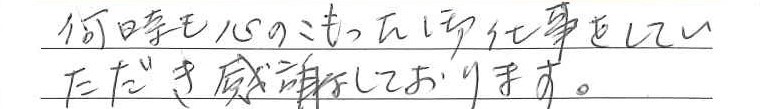 何時も心のこもった御仕事をしてい
ただき感謝しております。